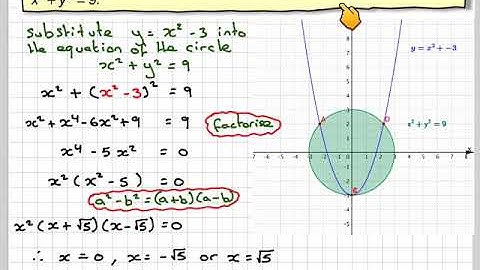 x² + y² = 9.
substitute y = x² - 3 into
the equation of the circle
x² + y² = 9
x² + (x² - 3)² = 9
x² + x⁴ - 6x² + 9 = 9
factorise
x⁴ - 5x² = 0
x² (x² - 5) = 0
a² - b² = (a + b)(a - b)
x² (x + √5)(x - √5) = 0
∴ x = 0 , x = -√5 or x = √5
y = x² + -3
x² + y² = 9
A
D